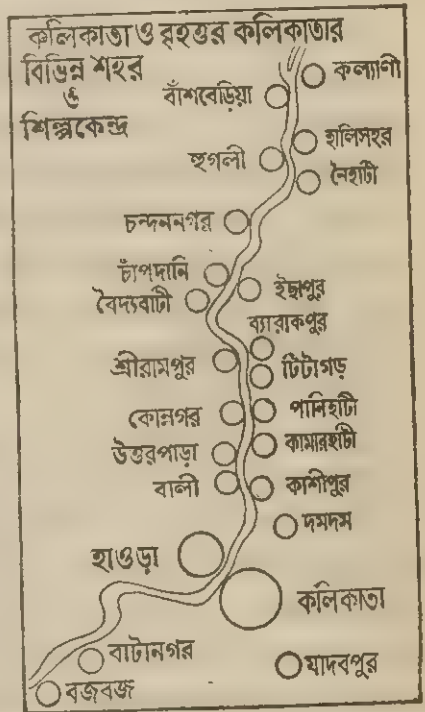 কলিকাতা ও বৃহত্তর কলিকাতার
বিভিন্ন শহর
ও
শিল্পকেন্দ্র
কল্যাণী
বাঁশবেড়িয়া
হালিসহর
হুগলী
নৈহাটী
চন্দননগর
চাঁপদানি
ইছাপুর
বৈদ্যবাটী
ব্যারাকপুর
শ্রীরামপুর
টিটাগড়
পানিহাটী
কোন্নগর
কামারহাটী
উত্তরপাড়া
বালী
কাশীপুর
দমদম
হাওড়া
কলিকাতা
বাটানগর
যাদবপুর
বজবজ